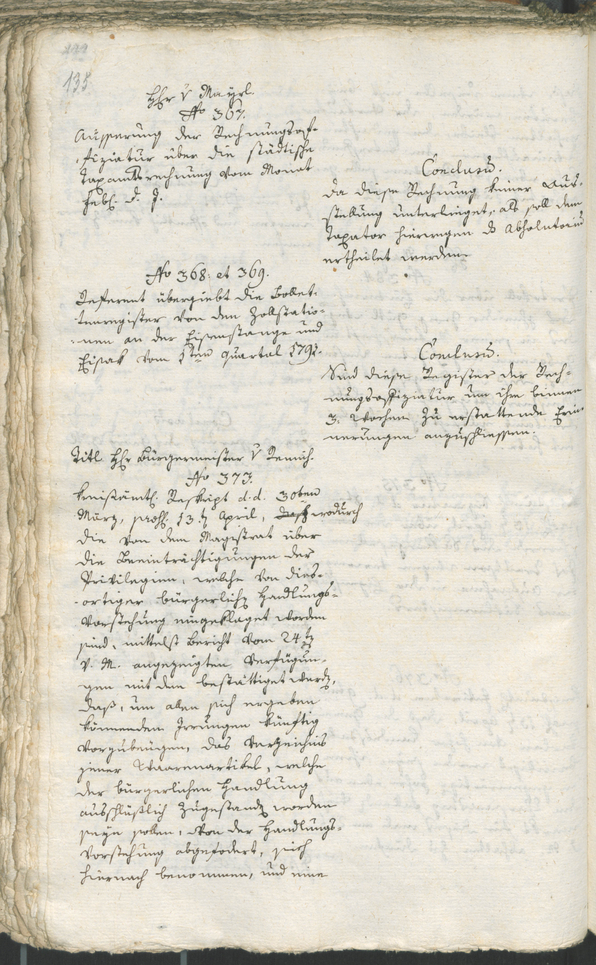 135
Hr. v Mayrl.
No 367.
Äusserung der Rechnungsof-
fiziatur über die städtische
Taxamtsrechnung vom Monat
Febr. d. J.
Conclusum.
Da diese Rechnung keiner Aus-
stellung unterlieget, als soll dem
Taxator hierwegen das Absolutorium
ertheilet werden.
No 368. et 369.
Referent übergiebt die Bollet-
tenregister von den Zollstatio-
nen an der Eisenstange und
Eisak vom 1ten Quartal 1792.
Conclusum.
Sind diese Register der Rech-
nungsoffiziatur um ihre binnen
3. Wochen zu erstattende Erin-
nerungen anzuschliessen.
Titl Hr. Bürgermeister v Remich.
No 373.
Kreisämtl. Reskript d. d. 30ten
März, praes. 13. April, wodurch
die von dem Magistrat über
die Beeinträchtigungen der
Privilegien, welche von dies-
ortiger bürgerlicher Handlungs-
Vorstehung eingeklaget worden
sind, mittelst Bericht vom 24ten
v. M. angezeigten Verfügun-
gen mit dem bestättiget werden,
daß, um allen sich ergeben
könnenden Irrungen künftig
vorzubeugen, das Verzeichnis
jener Waarenartikel, welche
der bürgerlichen Handlung
ausschlüßlich zugestanden worden
seyn sollen, von der Handlungs-
Vorstehung abgefodert, sich
hiernach benommen, und eine